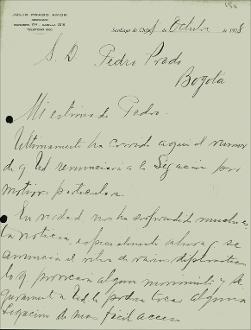 JULIO PRADO AMOR
Santiago de Chile, Octubre de 1928
S. D. Pedro Prado
Bogotá
Mi estimado Pedro:
Ultimamente ha corrido aquí el rumor
de q Ud renunciaria a la Legación por
motivos particulares.
En verdad no ha sorprendido mucho
la noticia, especialmente ahora q se
anuncia el retiro de varios diplomáticos
lo q provocará algun movimiento y se
guramente a Ud le podria tocar alguna
Legación de mas fácil acceso